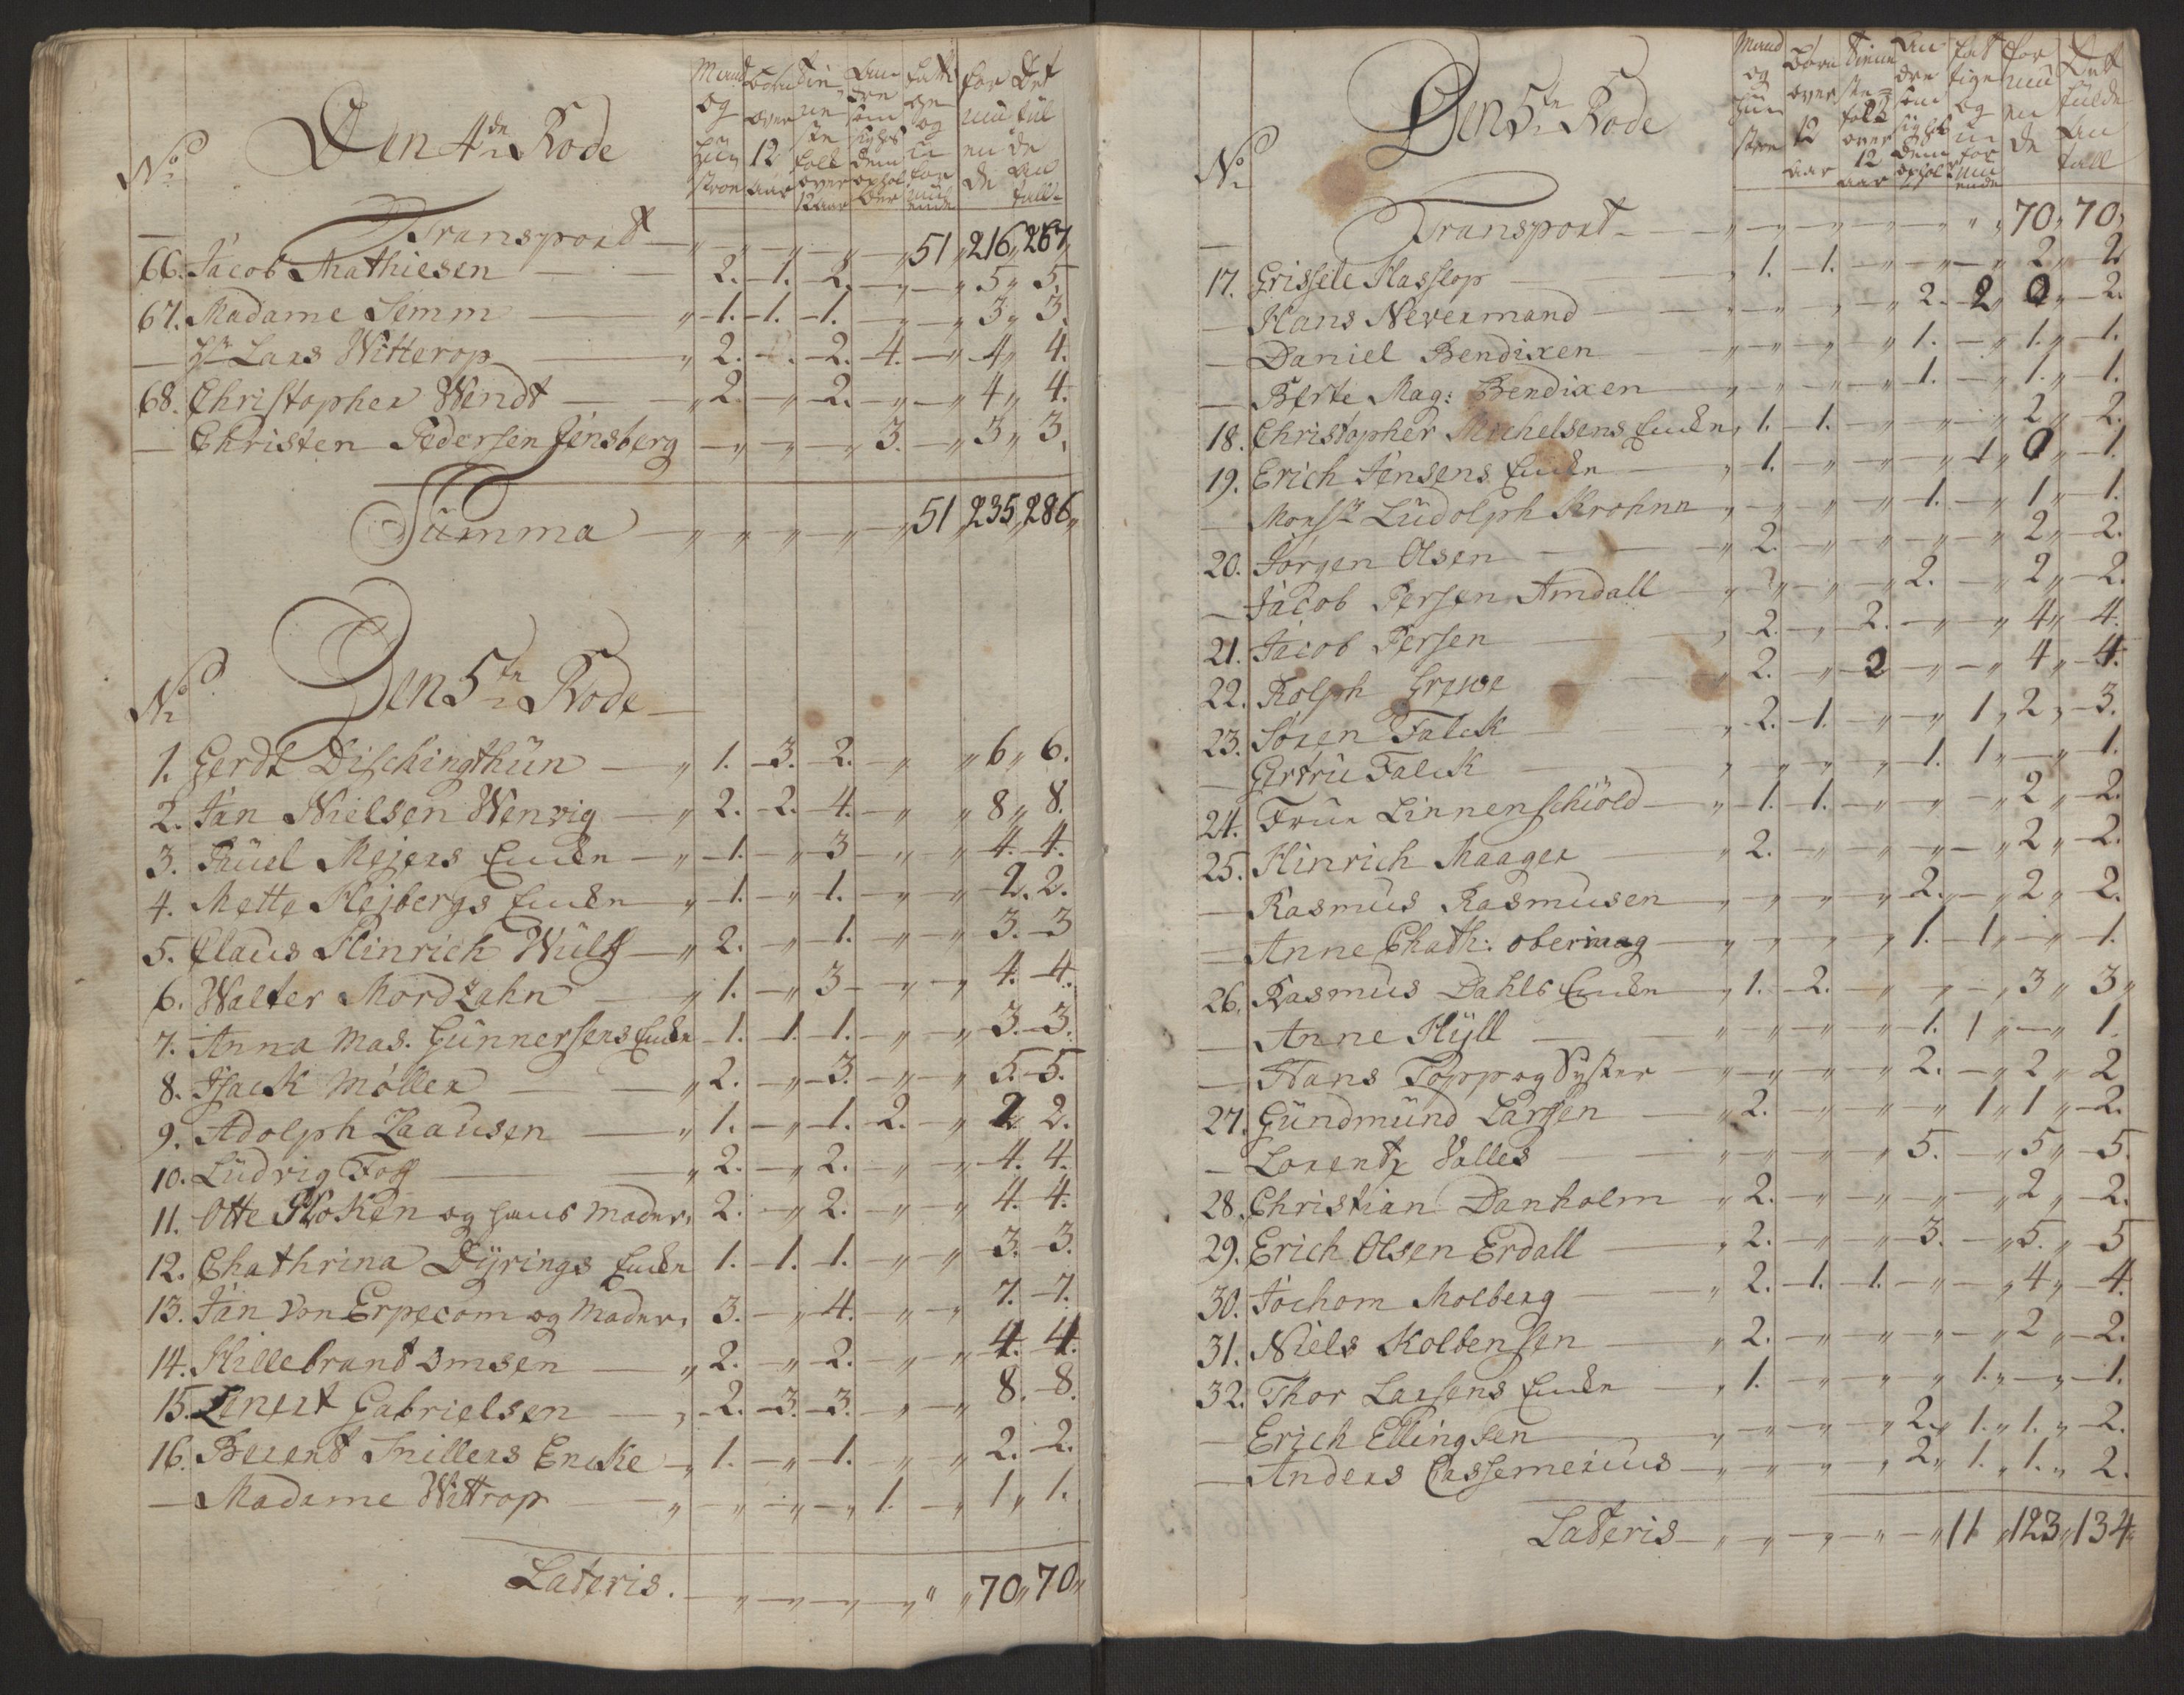 No
Den 4de Rode
Mand og Hustroe
Børn over 12 aar
Tieneste folk over 12 aar
Andre som sig hos dem opholder
Fattige og uformuende
Formuende
Det fulde Antall
Transport — „ — „ — „ — „ — „ 51 „ 216 „ 267 „
66. Jacob Mathiesen — 2. — 1. — 2. — „ — „ 5 „ 5.
67. Madame Semm — „ 1. — 1. — 1. — „ — „ 3 „ 3.
— Hr Lars Witterop — „ 2. — „ — 2. 4. — „ 4 „ 4.
68. Christopher Wendt — „ 2. — „ 2. — „ — „ 4 „ 4.
— Christen Pedersen Jensberg — „ — „ — „ 3. — „ 3 „ 3.
Summa — „ — „ — „ — „ — „ 51 „ 235 „ 286 „
No
Den 5te Rode
1. Gerdt Dischingthün — „ 1. — 3. — 2. — „ „ 6 „ 6.
2. Jan Nielsen Wenvig — „ 2. — 2. — 4. — „ „ 8 „ 8.
3. Pauel Mejers Encke — „ 1. — „ 3 — „ — „ 4. 4.
4. Mette Hejbergs Encke — „ 1. — „ 1. — „ — „ 2. 2.
5. Claus Hinrich Wulff — „ 2. — „ 1. — „ — „ 3. — 3
6. Walter Mordzahn — „ 1. — „ 3 — „ — „ 4. — 4.
7. Anna Mas. Gunnersens Encke — 1. — 1. — 1. — „ — „ 3. — 3.
8. Isack Møller — „ 2. — „ 3. — „ — „ 5. — 5.
9. Adolph Laausen — „ 1. — „ 1. — 2. — „ 2 2.
10. Ludvig Foss — „ 2. — „ 2. — „ — „ 4. 4.
11. Otte Ploken og hans Moder, 2. — „ 2. — „ — „ 4. 4.
12. Chathrina Dyrings Encke 1. — 1. — 1. — „ — „ 3. — 3.
13. Jan von Erpecom og Moder, 3. — „ 4. — „ — „ 7. — 7.
14. Hillebrant Omsen — „ 2. — „ 2. — „ — „ 4. 4.
15. Lenert Gabrielsen — „ 2. — 3. — 3. — „ — „ 8. — 8.
16. Berent Snillers Encke — „ 1. — „ 1. — „ — „ 2. — 2.
— Madame Wittrop — „ — „ — „ — „ 1. — „ 1 „ 1.
Lateris. — „ — „ — „ — „ „ „ 70 „ 70 „
No
Den 5te Rode
Mand og Hustroe
Børn over 12 aar
Tienneste folk over 12 aar
Andre som sig hos dem opholder
Fattige og uformuende
Formuende
Det fulde Antall
Transport — „ — „ — „ — „ „ „ 70 „ 70 „
17. Grissele Hasslop — „ 1. — 1. — „ — „ — „ 2 „ 2
— Hans Nevermand — „ — „ — „ 2. — 2 „ 0 „ — 2.
— Daniel Bendixen — „ — „ — „ — „ 1. — „ 1. „ — 1.
— Berte Mag: Bendixen — „ — „ — „ 1. — „ 1. „ — 1.
18. Christopher Michelsens Encke, 1. — 1. — „ — „ — „ 2 „ — 2.
19. Erich Jensens Encke — „ 1. — „ — „ — „ 1 „ 0 „ — 1.
— Monsr Ludolph Krohnn „ — „ — „ — „ 1. — „ 1 „ — 1.
20. Jørgen Olsen — „ 2. — „ — „ — „ — „ 2 „ — 2.
— Jacob Persen Amdall — „ — „ — „ 2. — „ 2 „ — 2.
21. Jacob Persen — „ 2. — „ 2. — „ — „ 4 „ 4.
22. Rolph Grewe — „ 2. — „ 2 — „ — „ 4 „ — 4.
23. Søren Falck — „ 2. — 1. — „ — „ 1 „ 2 „ — 3.
— Gertru Falck — „ — „ — „ — „ 1. 1 „ — „ 1.
24. Frue Linnenschiöld — „ 1. — 1. — „ — „ — „ 2 „ — 2.
25. Hinrich Maager — „ 2. — „ — „ — „ — „ 2 „ — 2.
— Rasmus Rasmusen — „ — „ — „ — „ 2. „ — „ 2 „ — 2.
— Anne Chath: obermag — „ — „ — „ — „ 1. — 1 „ — „ 1.
26. Rasmus Dahls Encke — „ 1. — 2. — „ — „ — „ 3 „ 3 „
— Anne Hyll — „ — „ — „ — „ 1. 1 „ — „ 1.
— Hans Topp og Syster — „ — „ — „ — „ 2. — „ 2 „ 2
27. Gundmund Larsen — „ 2. — „ — „ — „ 1 „ 1 „ — 2.
— Lorentz Valles — „ — „ — „ — „ 5. — „ 5 „ — 5.
28. Christian Danholm — „ 2. — „ — „ — „ — „ 2 „ — 2.
29. Erich Olsen Erdall — „ 2. — „ — „ 3. — „ 5. „ — 5
30. Jochom Molberg — „ 2. — 1. — 1. — „ — „ 4 „ — 4.
31. Niels Kolbensen — „ 2. — „ — „ — „ — „ 2 „ — 2.
32. Thor Larsens Encke — „ 1. — „ — „ — „ 1. „ — „ — 1.
— Erich Ellingsen — „ — „ — „ — „ 2 „ 1. „ 1. „ — 2.
— Anders Cassemerius — „ — „ — „ — „ 2 „ 1. „ 1. „ 2.
Lateris — „ — „ — „ — „ — „ 11 „ 123 „ 134 „